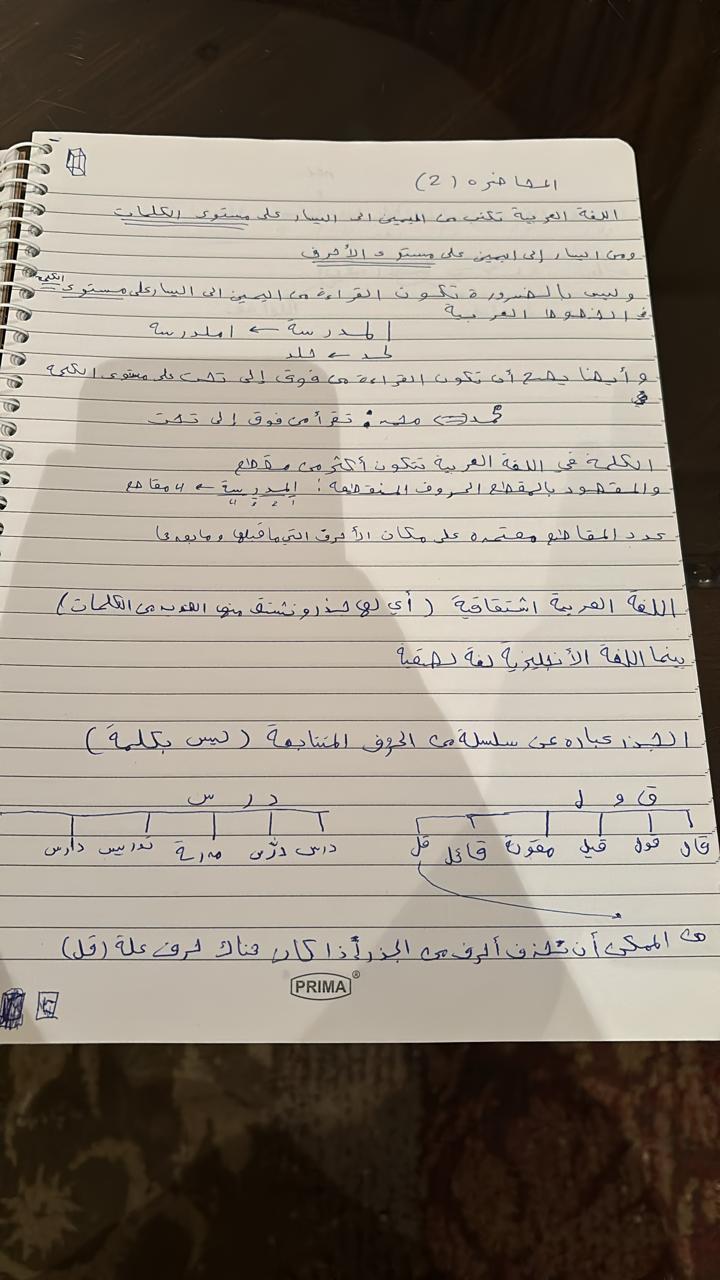 المحاضره (2)
اللغة العربية تكتب من اليمين الى اليسار على مستوى الكلمات
ومن اليسار إلى اليمين على مستوى الأحرف
وليس بالضرورة تكون القراءة من اليمين الى اليسار على مستوى الكلمة
في الخطوط العربية
المدرسة ← املدرسة
لحد ← حلد
وأيضا يصح أن تكون القراءة من فوق إلى تحت على مستوى الكلمة
تقرأ من فوق إلى تحت
الكلمة في اللغة العربية تتكون أكثر من مقطع
والمقصود بالمقطع الحروف المنقطعة: المدرسة ← 4 مقاطع
1 2 3 4
عدد المقاطع معتمده على مكان الأحرف التي ماقبلها ومابعدها
اللغة العربية اشتقاقية (أي لها جذر ونشتق منها العديد من الكلمات)
بينما اللغة الأنجليزية لغة لصقية
الجذر عباره عن سلسلة من الحروف المتتابعة (ليس بكلمة)
ق و ل
د ر س
قال قول قيل مقولة قائل قل
درس درّس مدرسة تدريس دارس
من الممكن أن تحذف أحرف من الجذر إذا كان هناك حرف علة (قل)
PRIMA®